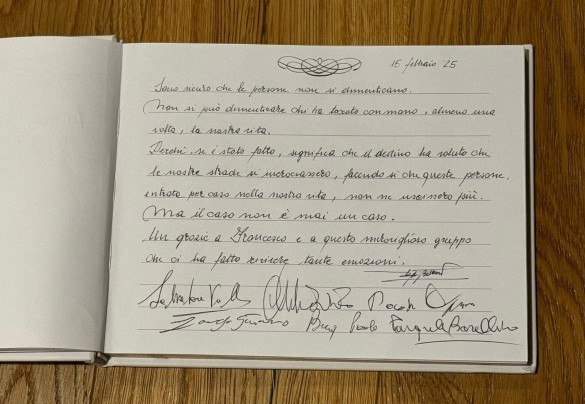 15 febbraio 25
Sono sicuro che le persone non si dimenticano.
Non si può dimenticare chi ha toccato con mano, almeno una
volta, la nostra vita.
Perché, se è stato fatto, significa che il destino ha voluto che
le nostre strade si incrociassero, facendo sì che queste persone,
entrate per caso nella nostra vita, non ne uscissero più.
Ma il caso non è mai un caso.
Un grazie a Francesco e a questo meraviglioso gruppo
che ci ha fatto rivivere tante emozioni.
Salvatore
Paolo Pasquale Barellino